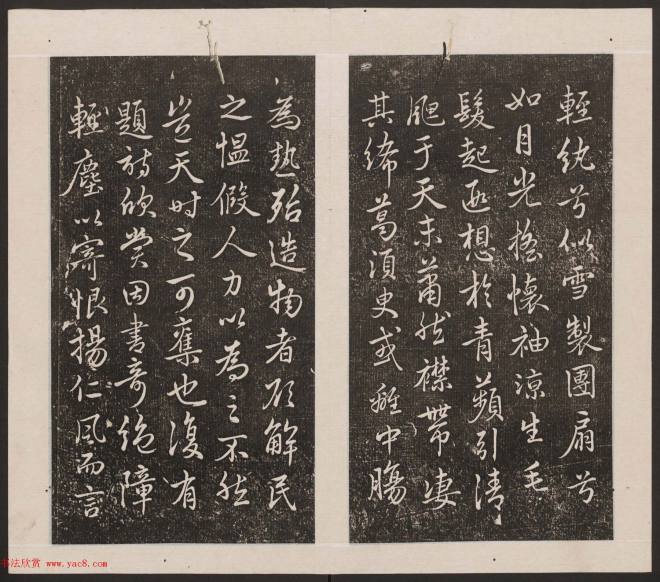 輕紈兮似雪製團扇兮
如月光搖懷袖涼生毛
髮起遐想於青蘋引清
颸于天末蕭然襟帶淒
其絺葛須臾或離中腸
為熱殆造物者欲解民
之慍假人力以為之不然
豈天時之可奪也復有
題詩欣賞因書奇絕障
輕塵以寄恨揚仁風而言
书法欣赏 www.yac8.com